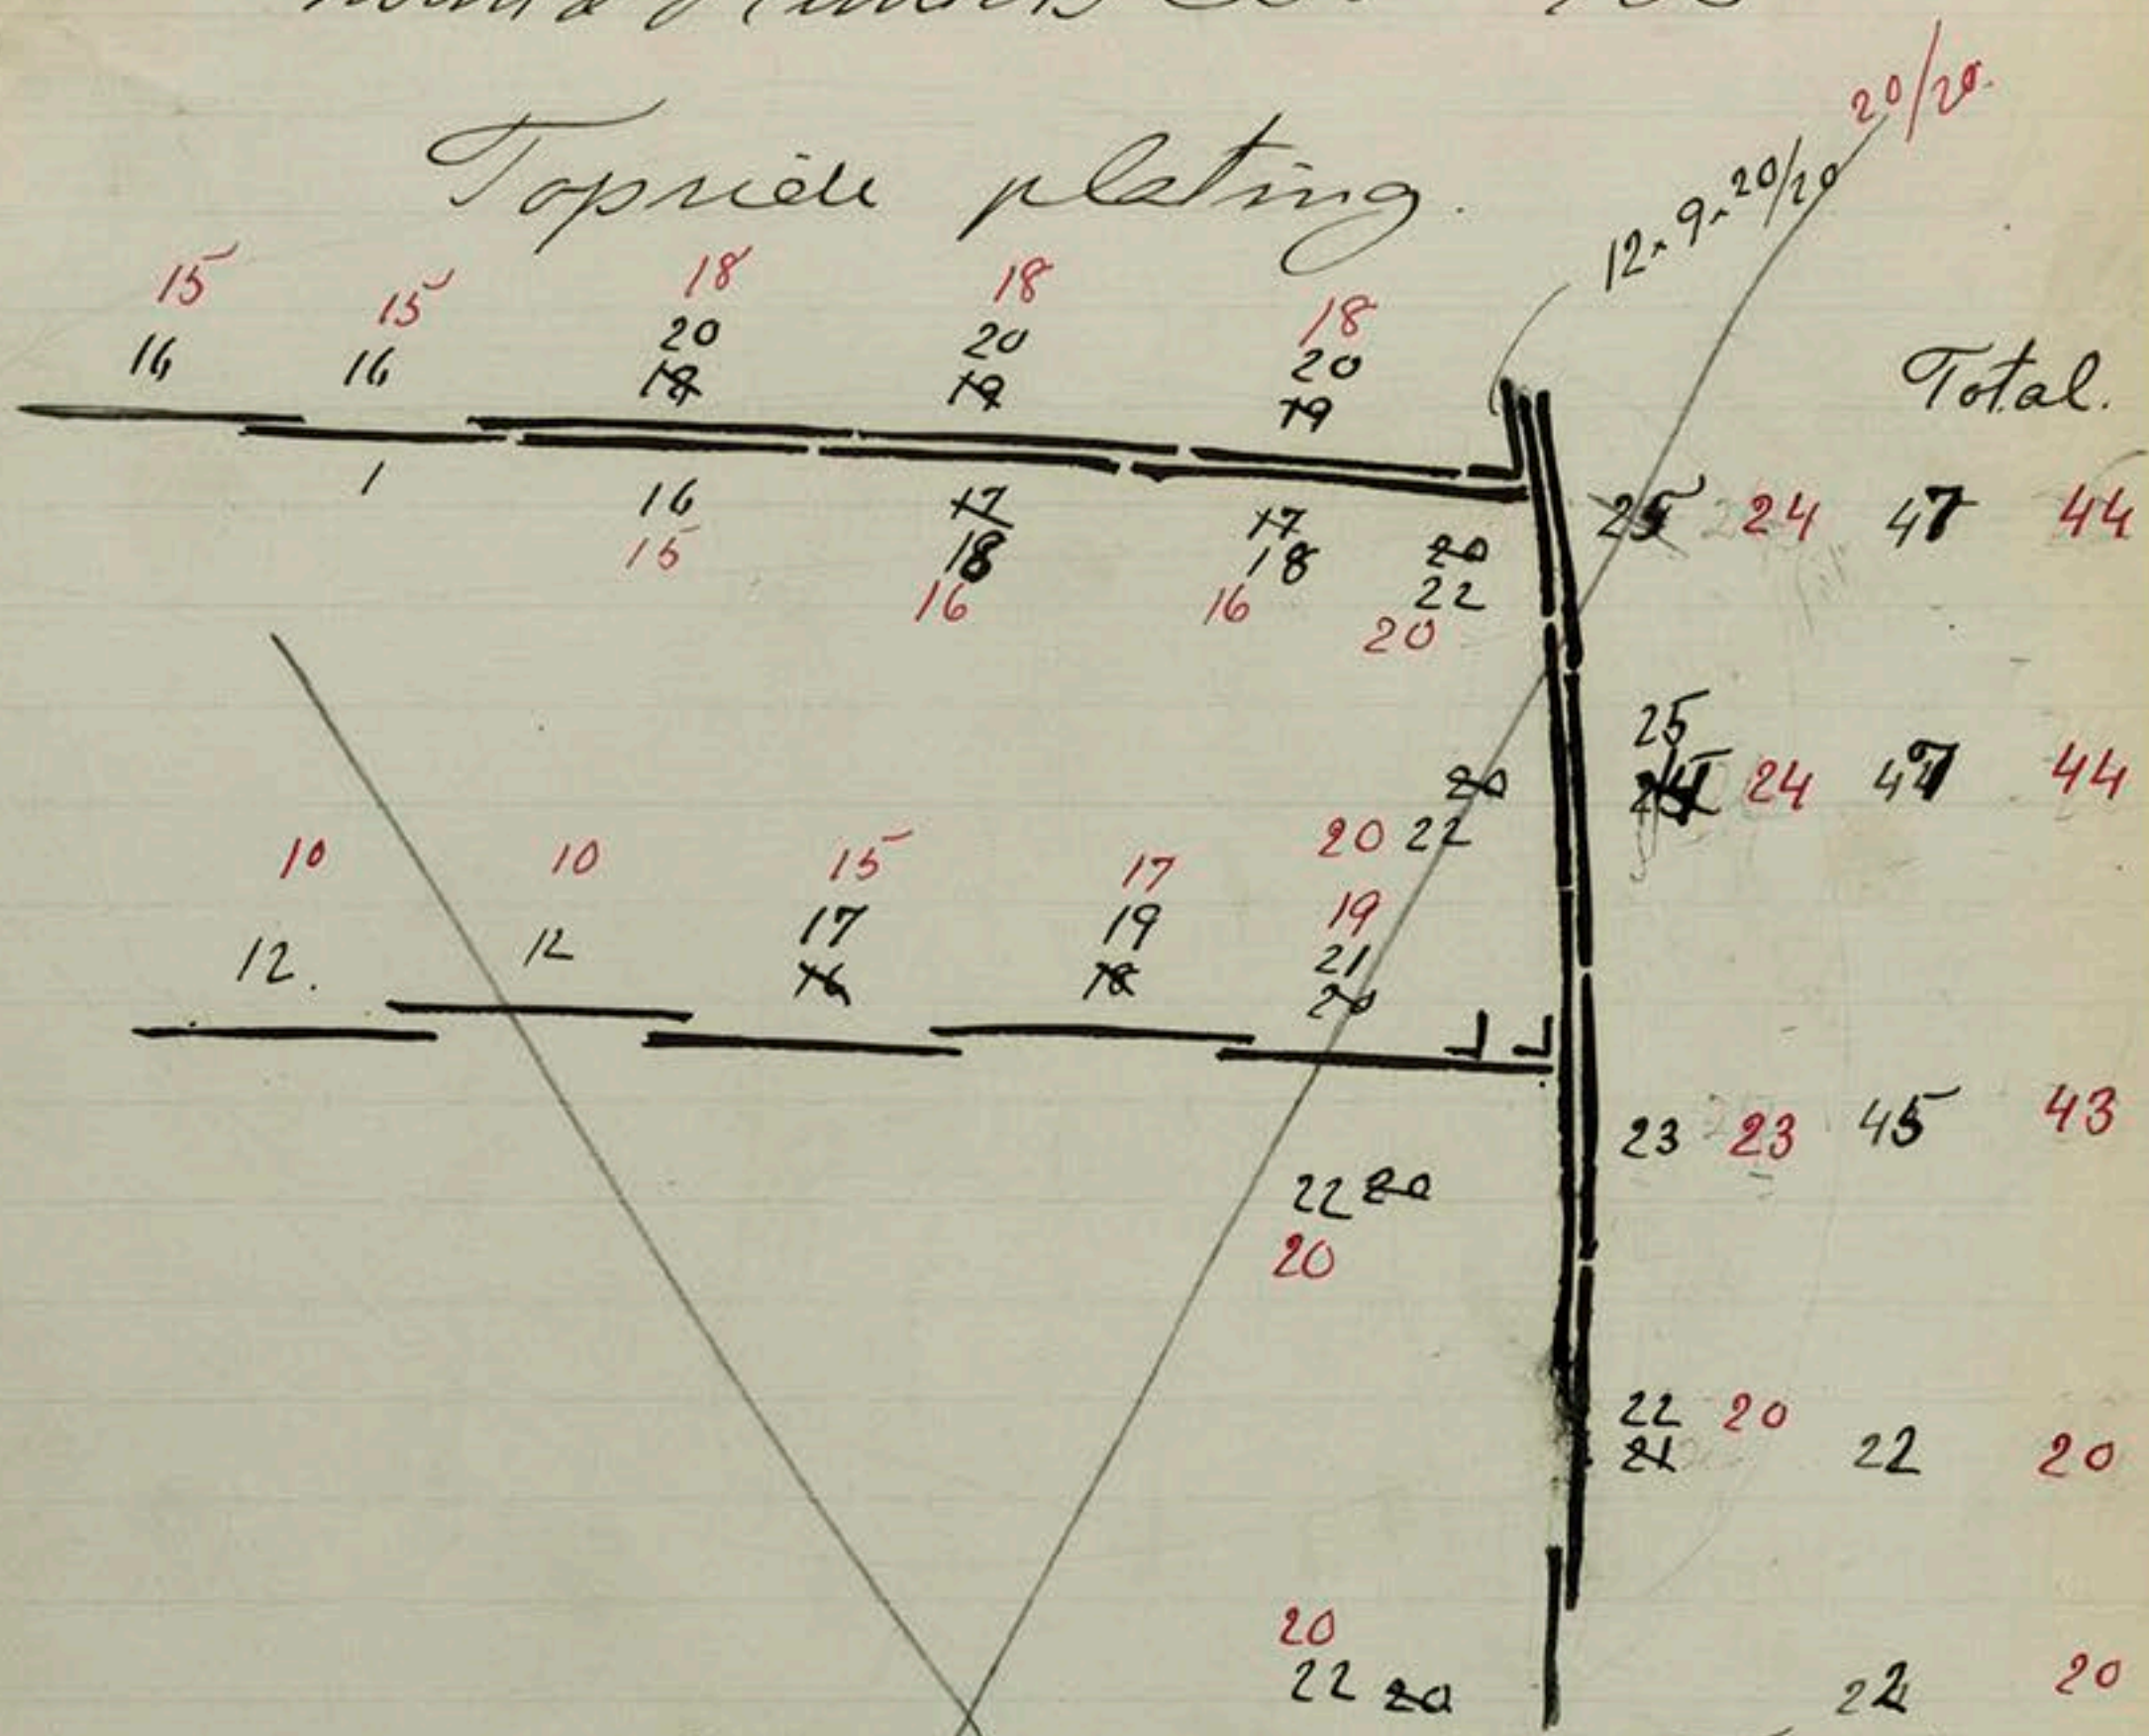 Topside plating.
20/20.
12 × 9 × 20/20
15 15 18 18 18
16 16 20 20 20
18 19 19
Total.
1 16 17 17 20
15 18 18 22
16 16 20
25 24 47 44
25
24 24 47 44
20
20 22
10 10 15 17 19
12. 12 17 19 21
16 18 20
23 23 45 43
22 20
20
22 20 22 20
21
20
22 20 22 20